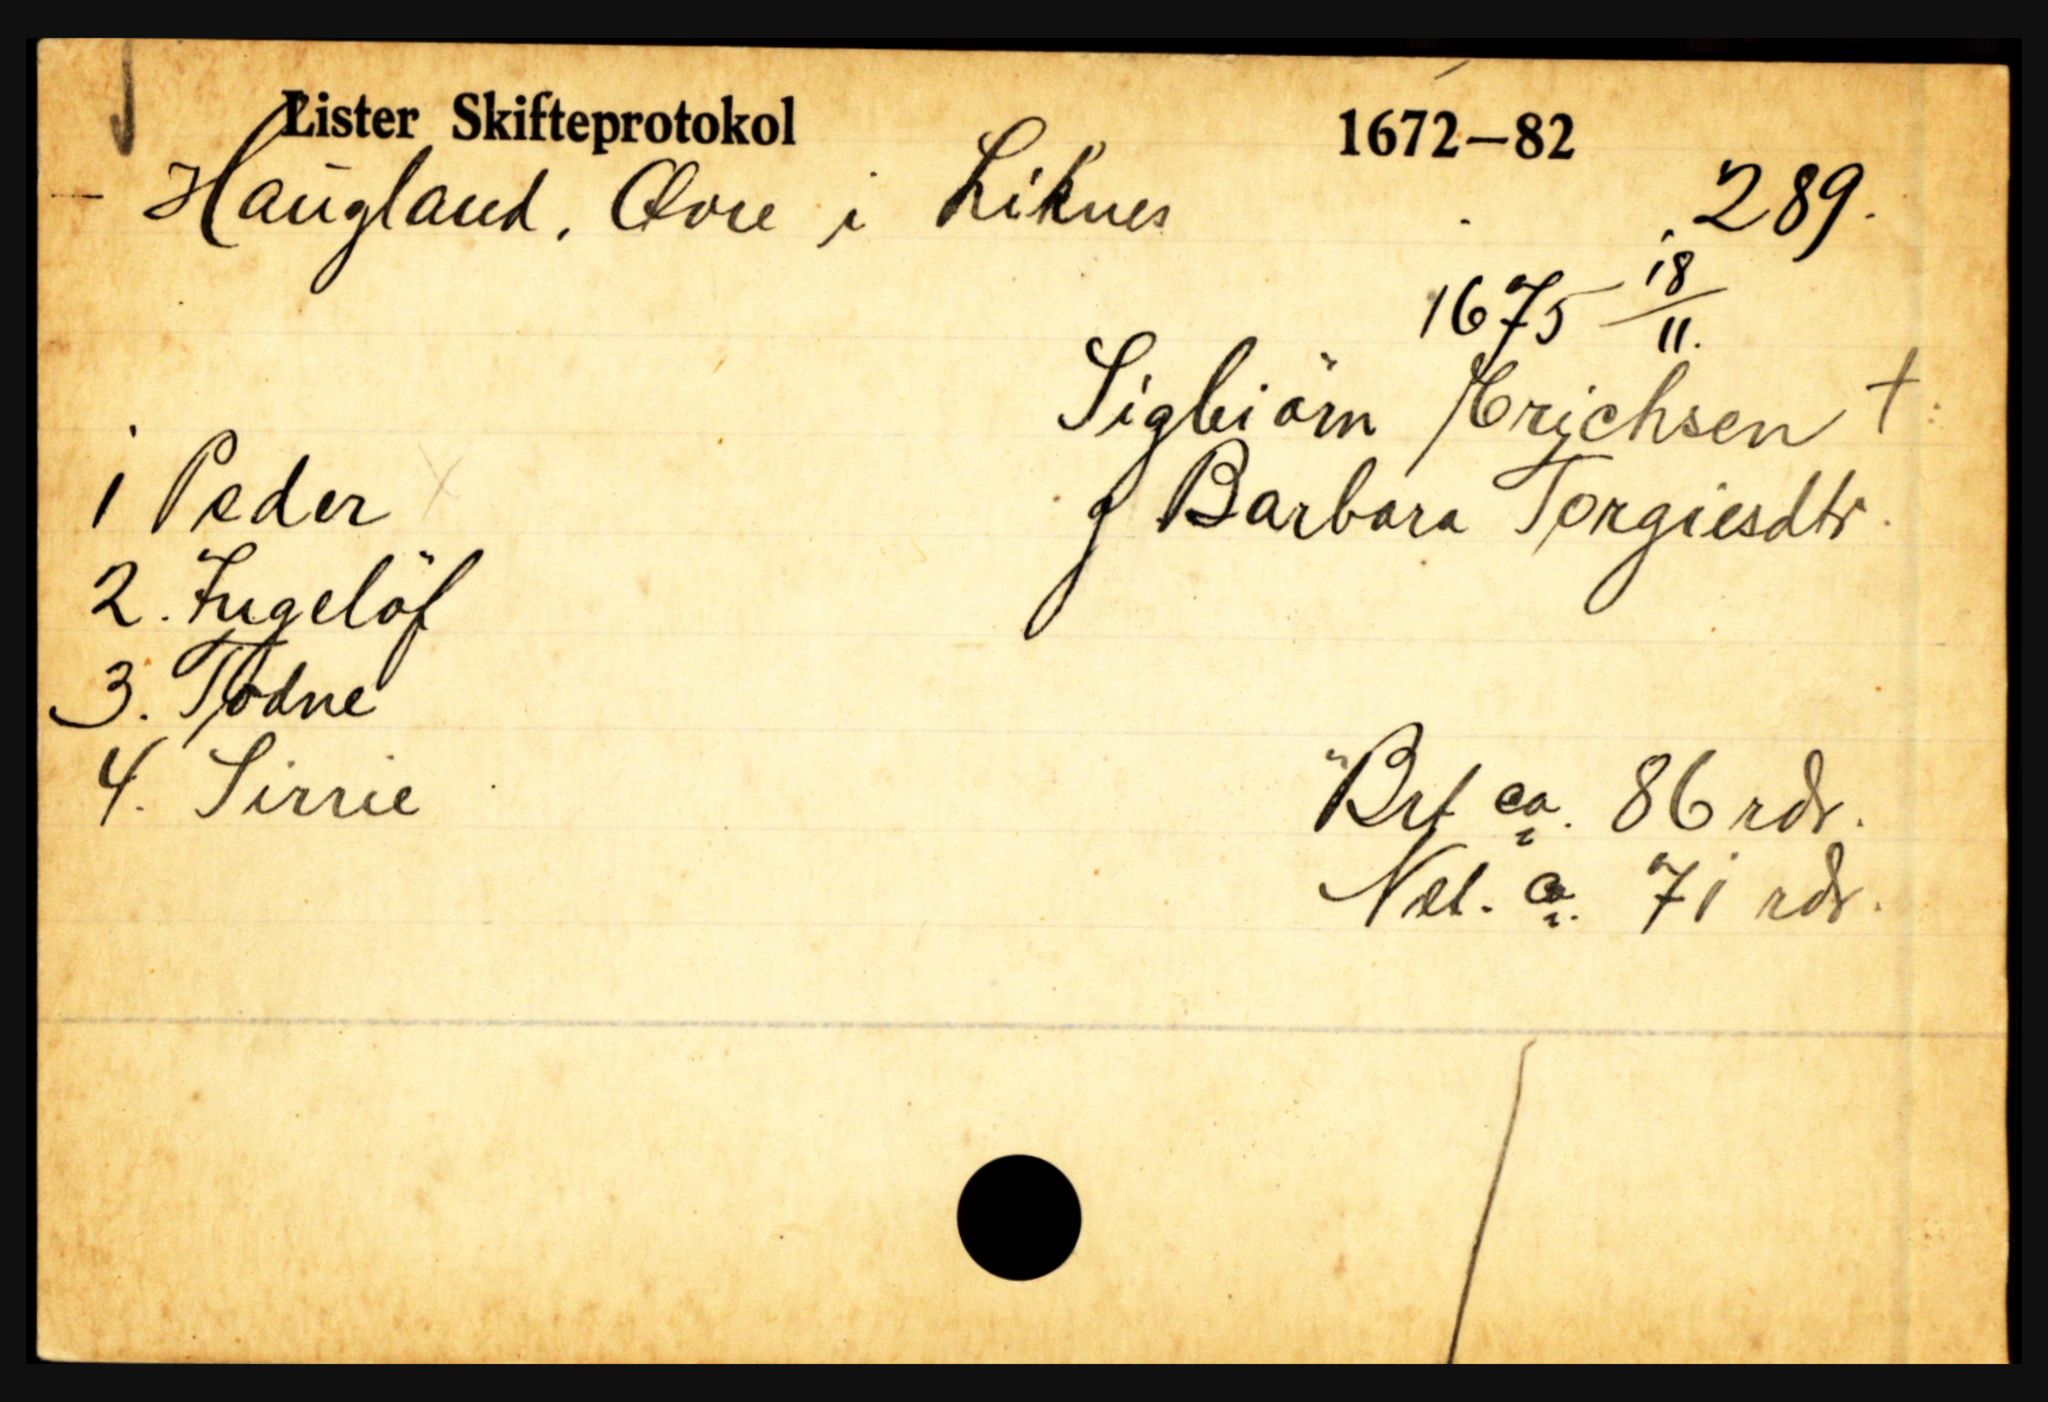 Lister Skifteprotokol 1672–82
Haugland. Øvre i Liknes 289.
1675 18/11.
Sigbiörn Erichsen †
g Barbara Torgiesdtr.
1 Peder
2. Ingelöf
3. Todne
4. Sirrie
Brt ca. 86 rdr.
Net. ca. 71 rdr.